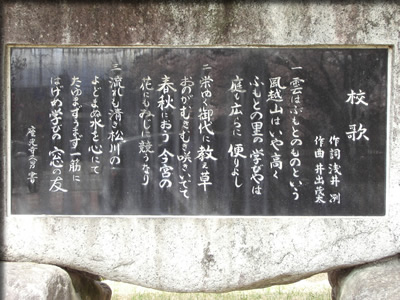 校歌
作詞 浅井 冽
作曲 井出茂太
一 雲はふもとのものという
風越山はいや高く
ふもとの里の学びやは
庭も広らに便りよし
二 栄ゆく御代に教え草
おのがむきむき咲きいでて
春秋におう今宮の
花にもみじに競うなり
三 流れも清き松川の
よどまぬ水を心にて
たゆまずうまず一筋に
はげめ学びの窓の友